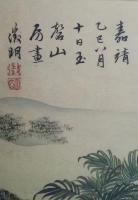 嘉靖
乙巳八月
十日玉
磬山
房畫
徵明